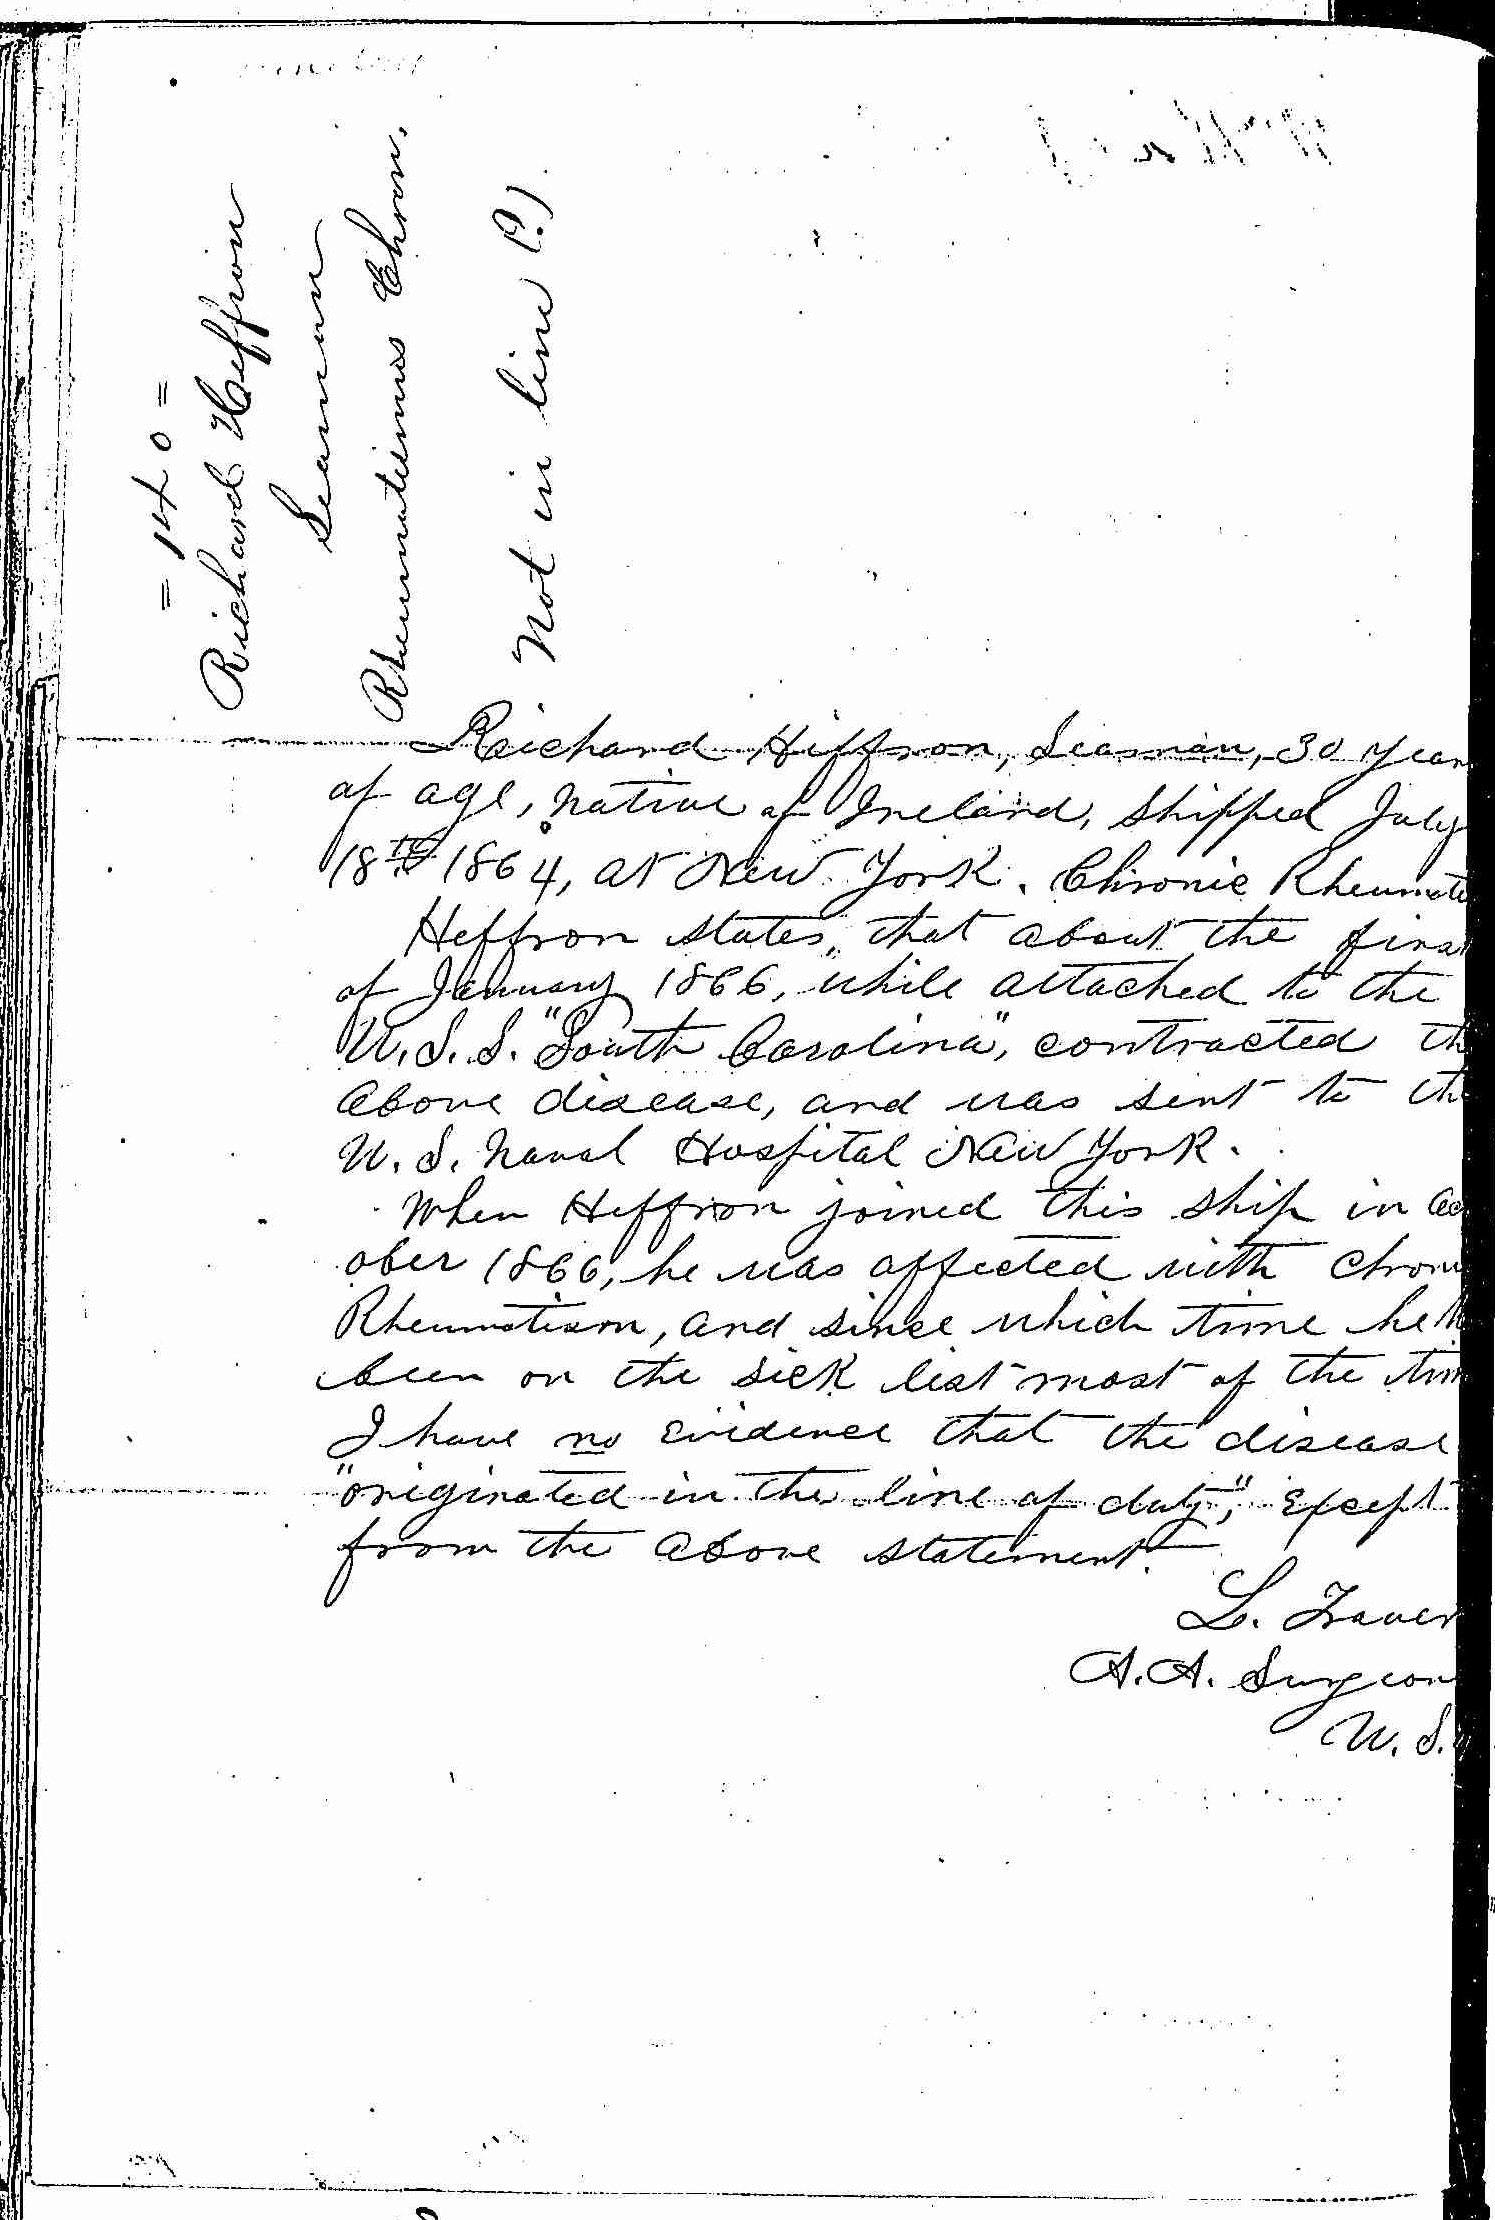 = 140 =
Richard Heffron
Seaman
Rheumatismus Chron.
Not in line (?)
Richard Heffron, Seaman, 30 year
of age, native of Ireland, Shipped July
18th 1864, at New York. Chronic Rheumati
Heffron states, that about the first
of January 1866, while attached to the
U.S.S. "South Carolina", contracted th
above disease, and was sent to th
U.S. Naval Hospital New York.
When Heffron joined this ship in Oc
ober 1866, he was affected with Chron
Rheumatism, and since which time he h
been on the sick list most of the tim
I have no evidence that the disease
"originated in the line of duty," except
from the above statement.
L. Traver
A.A. Surgeon
U.S.